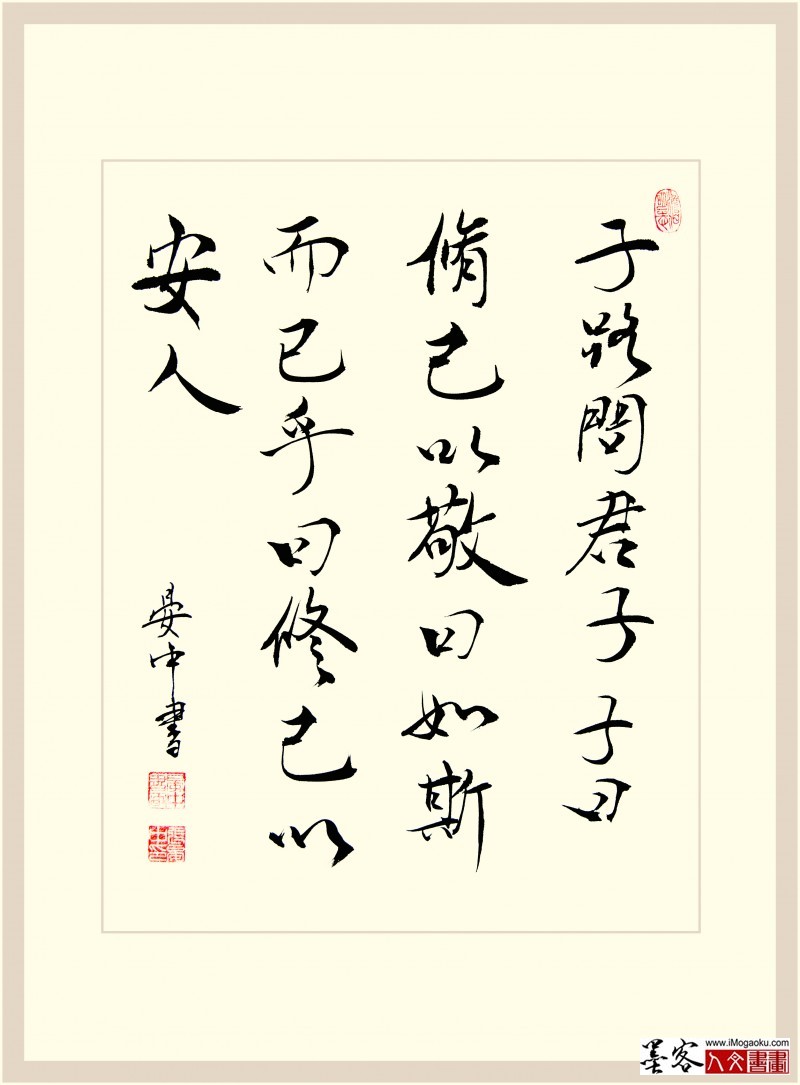 子路問君子子曰
脩己以敬曰如斯
而已乎曰修己以
安人
晏中書
www.iMogaoku.com
墨客
人文書畫